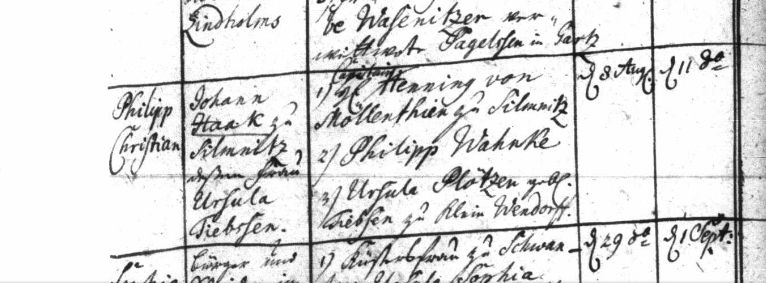 Lindholms
be Wasenitzer ver-
wittwete Tagelssen in Gartz
Philipp
Christian
Johann
Haak zu
Silmnitz
dessen Frau
Ursula
Tiebssen.
Capitain
1) H. Henning von
Möllenthien zu Silmnitz
2) Philipp Wahnke
3) Ursula Plötzen geb.
Tiebsen zu Klein Wendorff.
d 8 Aug.
d 11 do
bürger und
1) Küstersfrau zu Schwan-
Sophia
d 29 do
d 1 Sept: